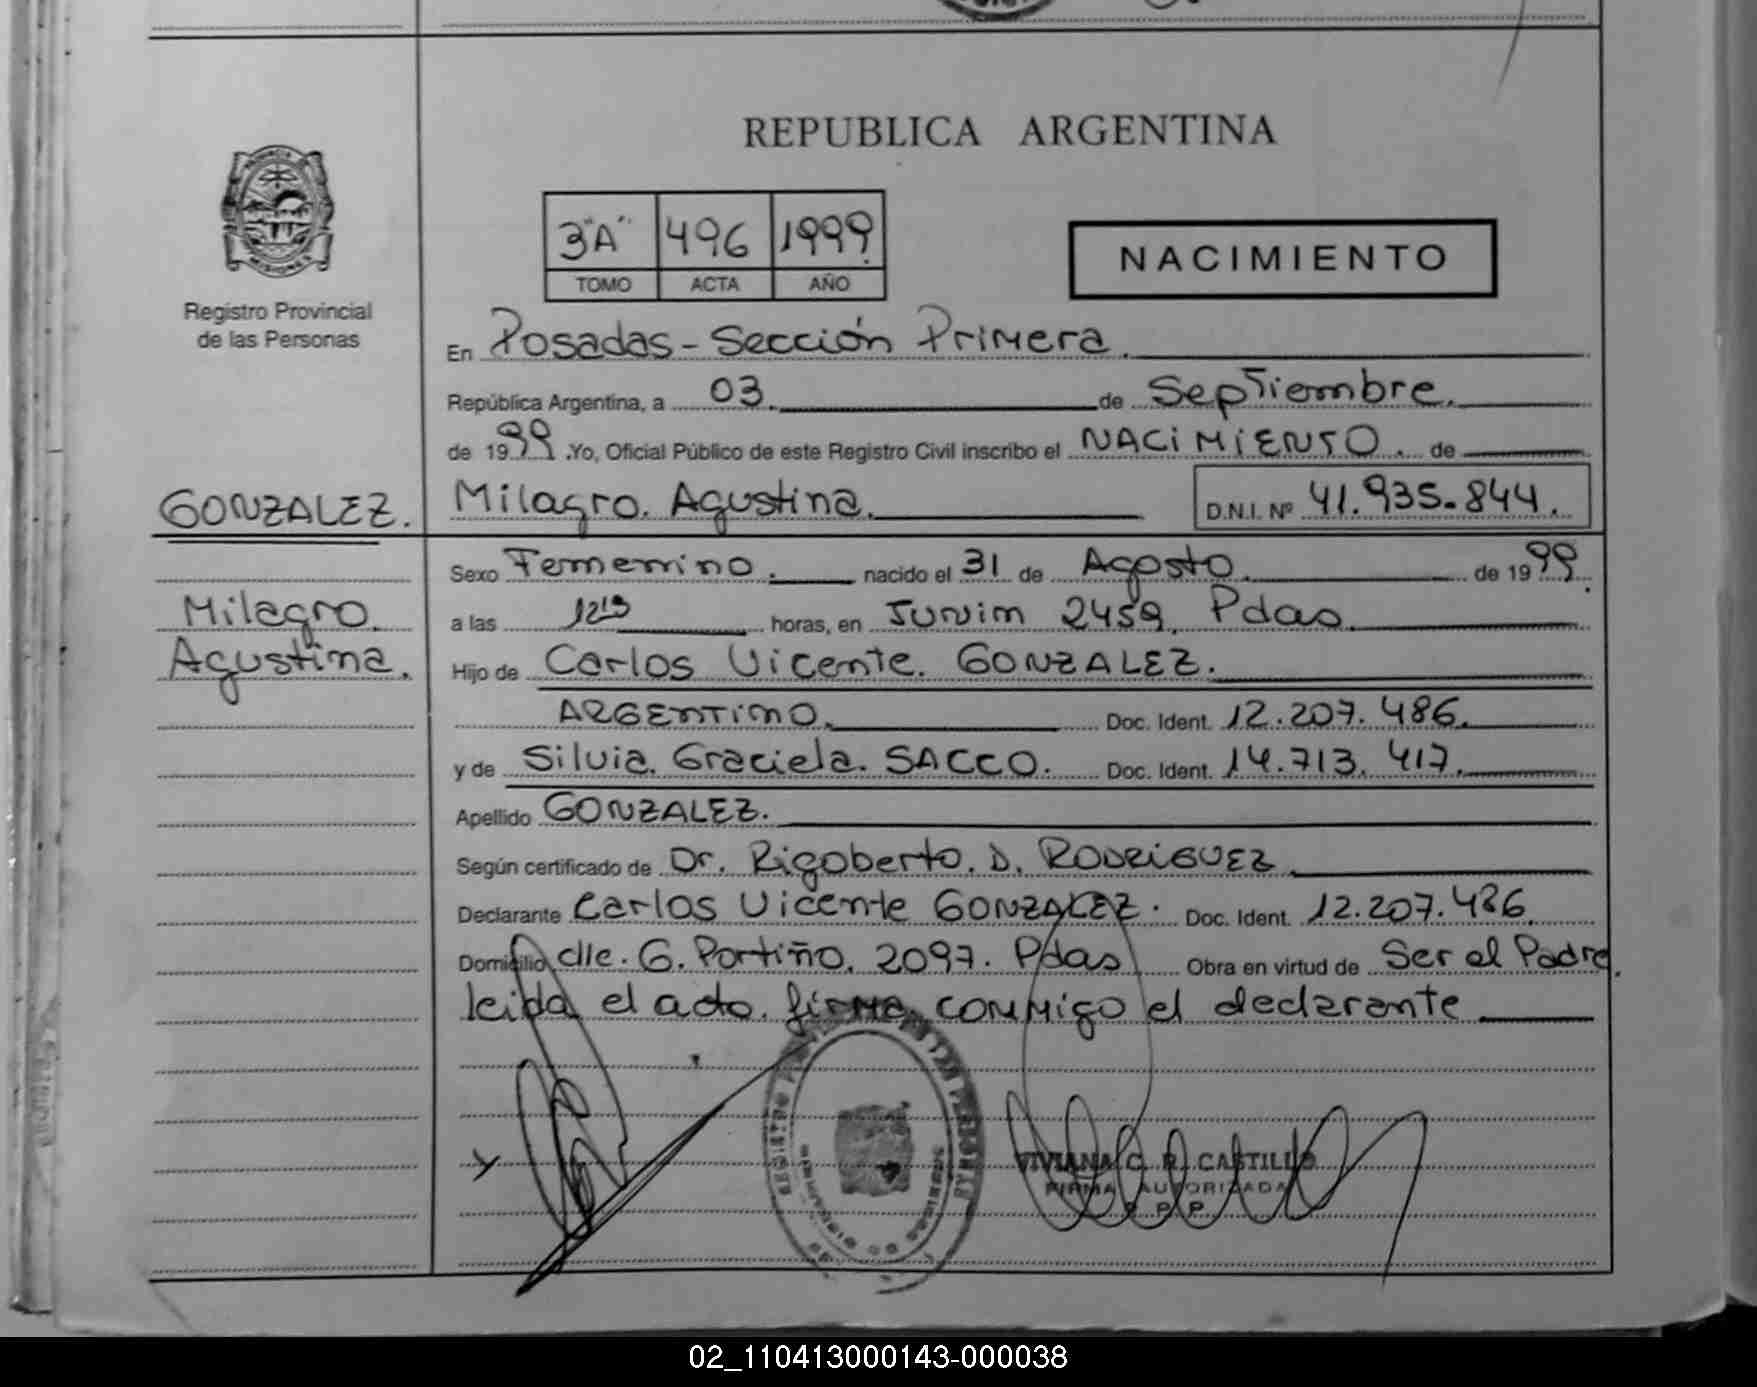 REPUBLICA ARGENTINA
3"A" 496 1999
TOMO ACTA AÑO
NACIMIENTO
MISIONES
Registro Provincial
de las Personas
En Posadas - Sección Primera.
República Argentina, a 03. de Septiembre.
de 1999 .Yo, Oficial Público de este Registro Civil inscribo el NACIMIENTO. de
GONZALEZ. Milagro. Agustina. D.N.I. Nº 41.935.844.
Sexo Femenino. nacido el 31 de Agosto. de 1999.
Milagro.
Agustina.
a las horas, en Junin 2459. Pdas.
Hijo de Carlos Vicente. GONZALEZ.
ARGENTINO. Doc. Ident. 12.207.486.
y de Silvia. Graciela. SACCO. Doc. Ident. 14.713.417.
Apellido GONZALEZ.
Según certificado de Dr. Rigoberto. D. RODRIGUEZ
Declarante Carlos Vicente GONZALEZ. Doc. Ident. 12.207.486
Domicilio clle. G. Portiño. 2097. Pdas Obra en virtud de Ser el Padre.
leida el acta. firma conmigo el declarante
VIVIANA C. R. CASTILLO
FIRMA AUTORIZADA
R P P
02_110413000143-000038